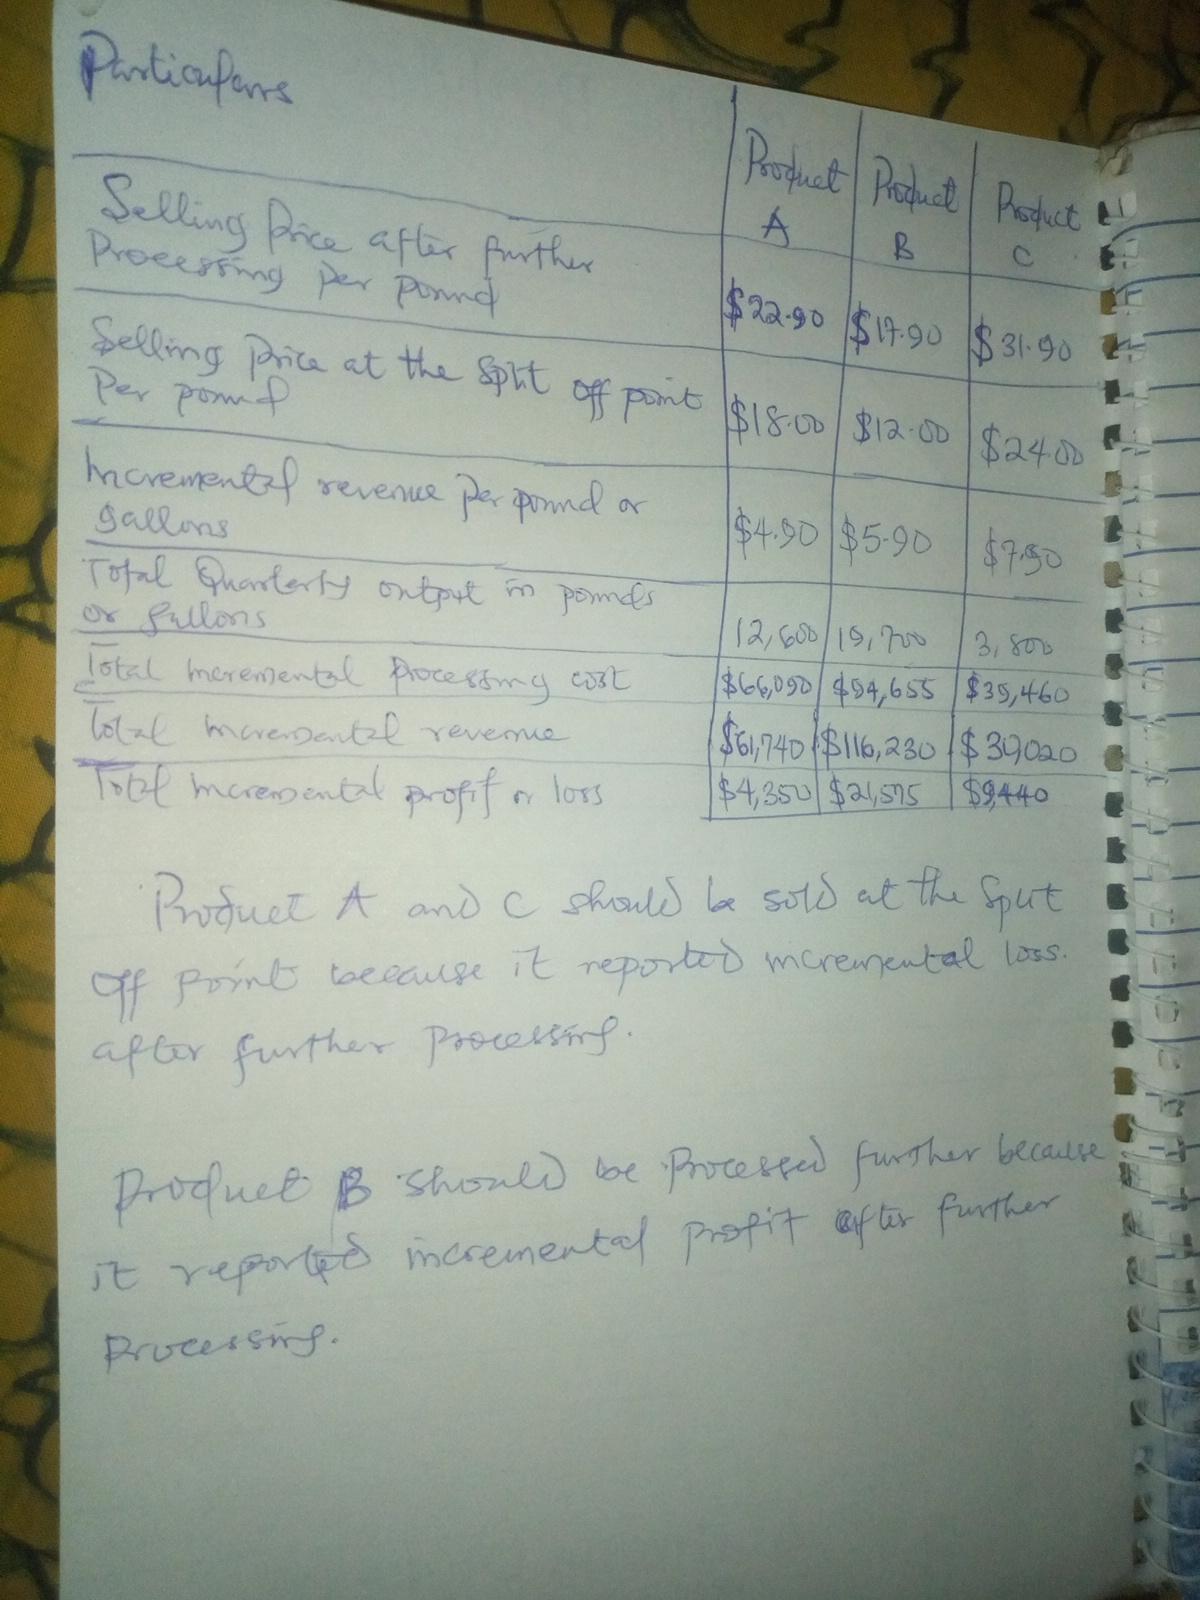 Particulars
Product A
Product B
Product C
Selling Price after further
Processing per pound
$22.90
$17.90
$31.90
Selling Price at the split off point
Per pound
$18.00
$12.00
$24.00
Incremental revenue Per pound or
gallons
$4.90
$5.90
$7.90
Total Quarterly output in pounds
or gallons
12,600
19,700
3,800
Total Incremental Processing cost
$66,090
$94,655
$39,460
Total Incremental revenue
$61,740
$116,230
$30,020
Total Incremental profit or loss
$4,350
$21,575
$9,440
Product A and C should be sold at the Split
off point because it reported incremental loss.
after further processing.
Product B should be Processed further because
it reported incremental profit after further
Processing.